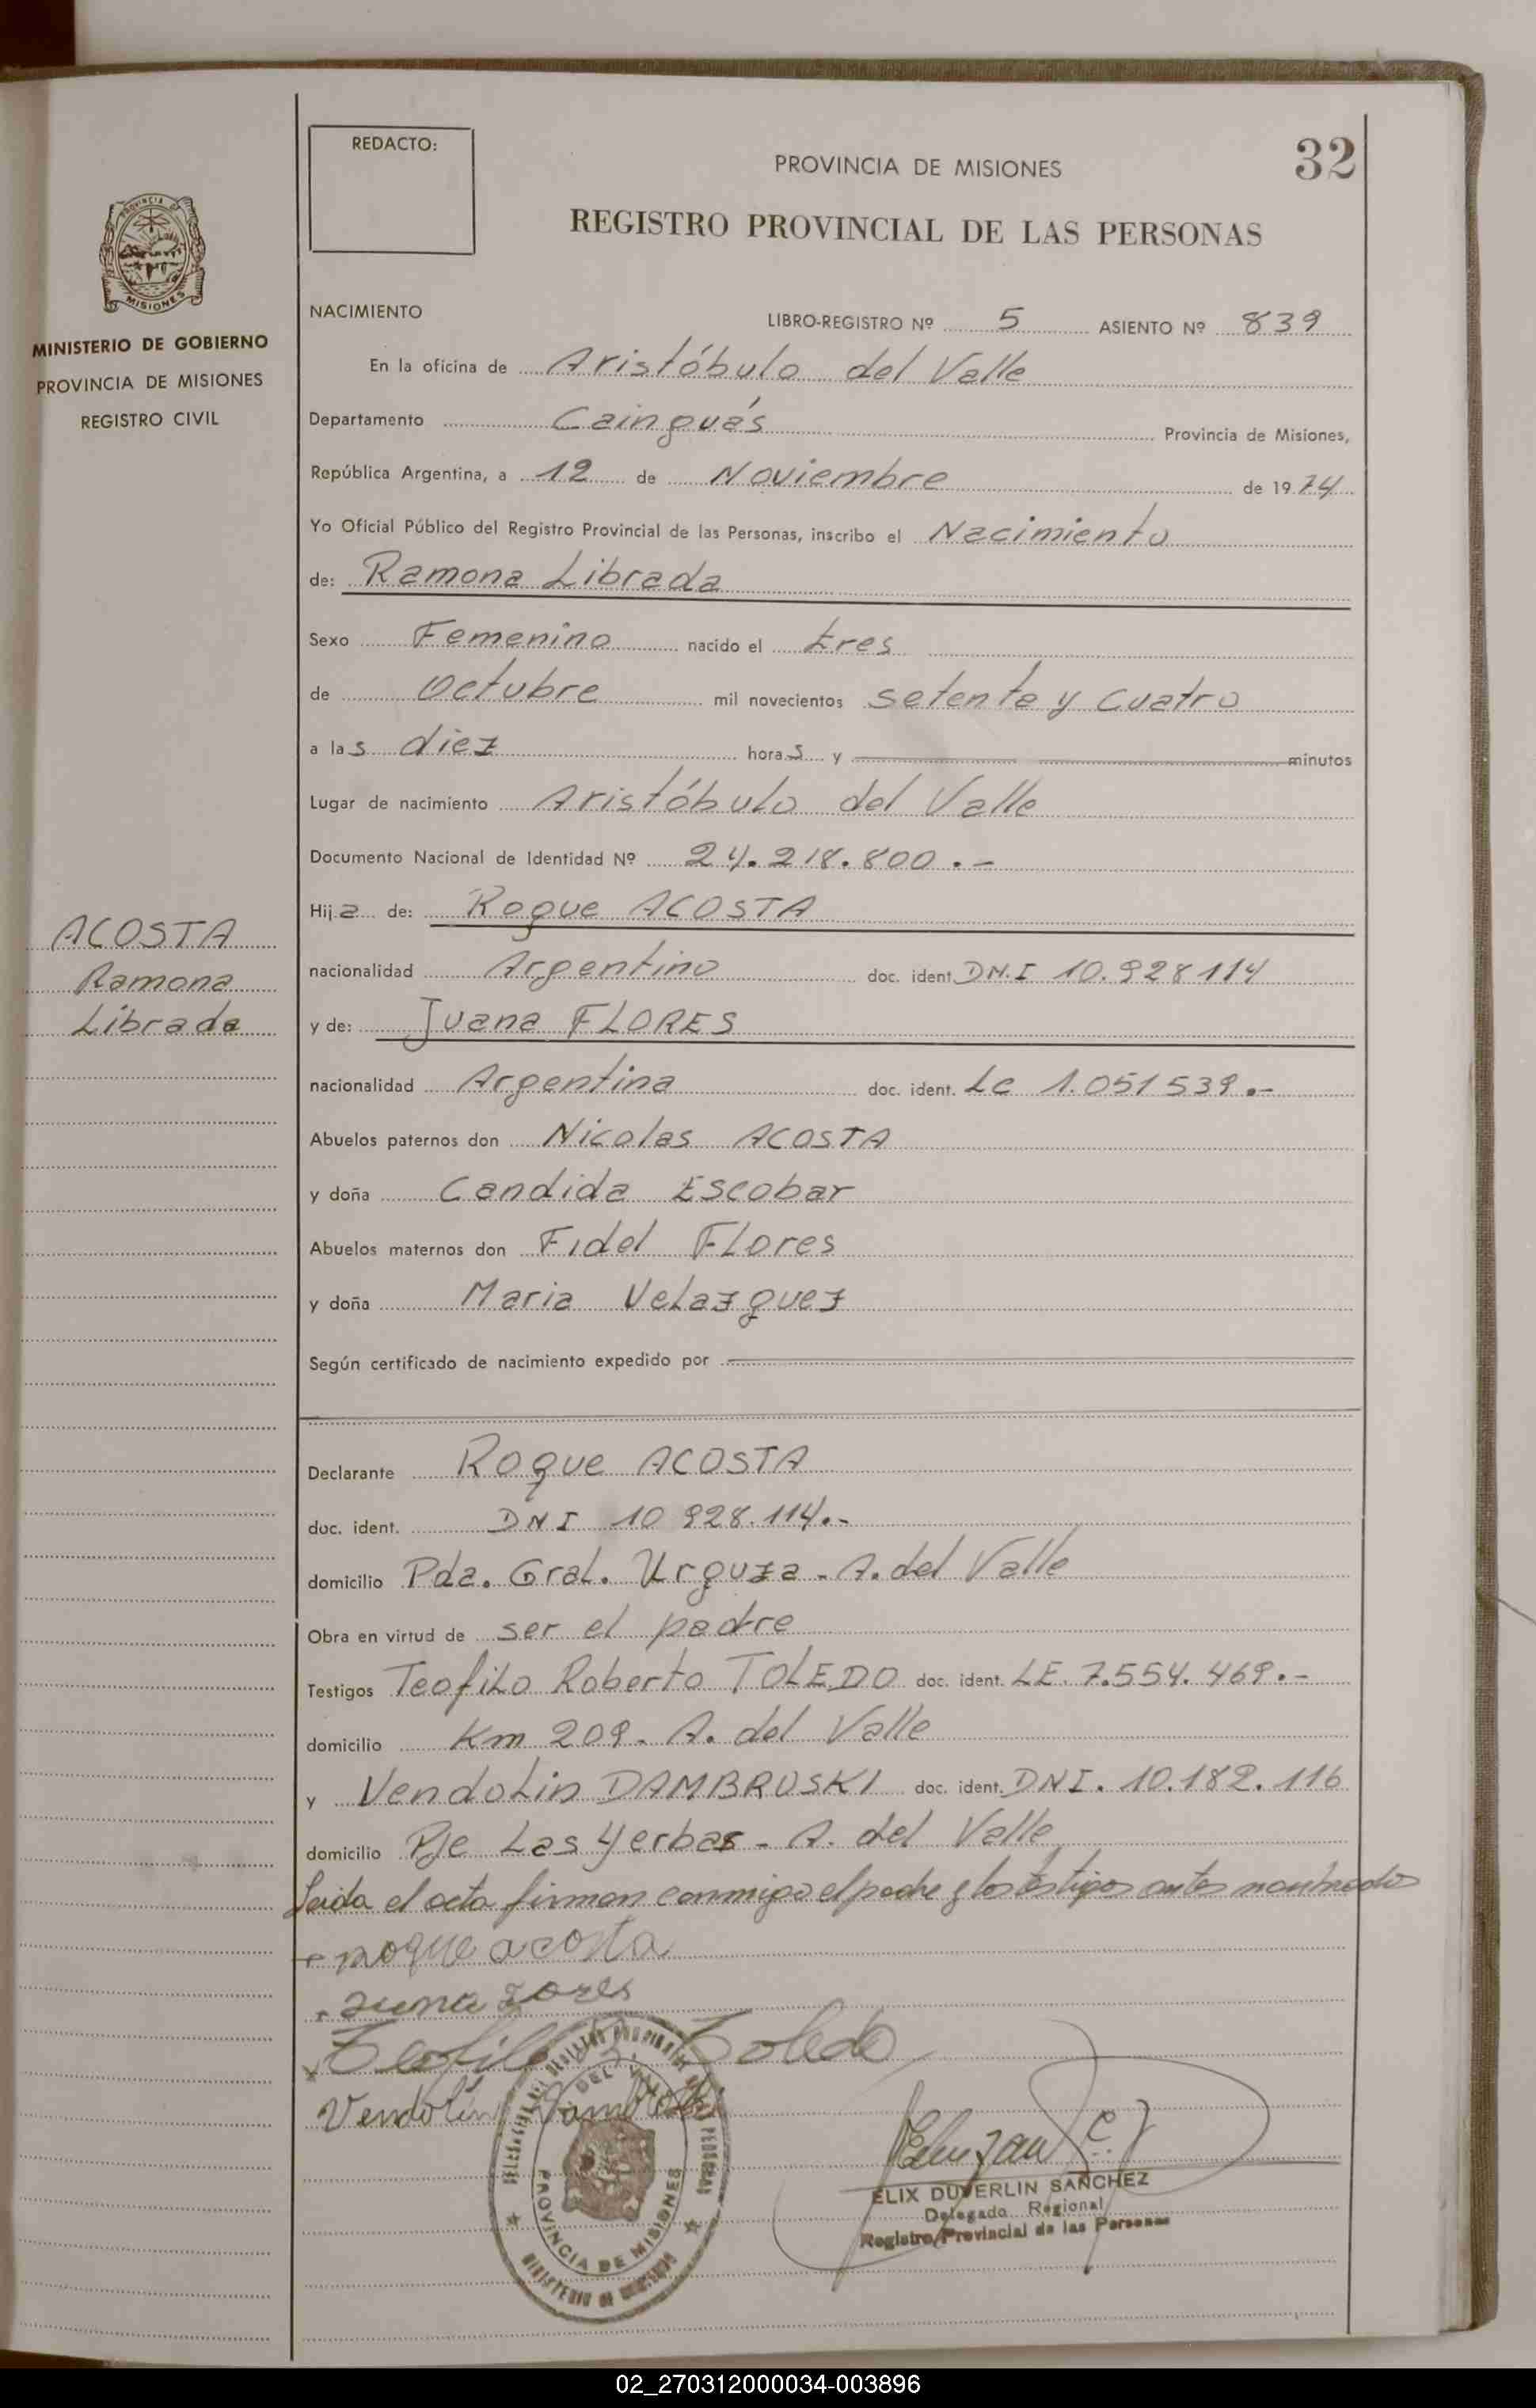 REDACTO:
32
PROVINCIA DE MISIONES
REGISTRO PROVINCIAL DE LAS PERSONAS
PROVINCIA DE
MISIONES
MINISTERIO DE GOBIERNO
PROVINCIA DE MISIONES
REGISTRO CIVIL
ACOSTA
Ramona
Librada
NACIMIENTO LIBRO-REGISTRO Nº 5 ASIENTO Nº 839
En la oficina de Aristóbulo del Valle
Departamento Cainguás Provincia de Misiones,
República Argentina, a 12 de Noviembre de 1974
Yo Oficial Público del Registro Provincial de las Personas, inscribo el Nacimiento
de: Ramona Librada
Sexo Femenino nacido el tres
de Octubre mil novecientos setenta y cuatro
a las diez horas y minutos
Lugar de nacimiento Aristóbulo del Valle
Documento Nacional de Identidad Nº 24.218.800.-
Hija de: Roque ACOSTA
nacionalidad Argentino doc. ident. DN.I 10.928114
y de: Juana FLORES
nacionalidad Argentina doc. ident. Lc 1.051539.-
Abuelos paternos don Nicolas ACOSTA
y doña Candida Escobar
Abuelos maternos don Fidel Flores
y doña Maria Velazquez
Según certificado de nacimiento expedido por
Declarante Roque ACOSTA
doc. ident. DNI 10 928.114.-
domicilio Pda. Gral. Urquza - A. del Valle
Obra en virtud de ser el padre
Testigos Teofilo Roberto TOLEDO doc. ident. LE. 7.554.469.-
domicilio Km 209 - A. del Valle
y Vendolin DAMBRUSKI doc. ident. DNI. 10.182.116
domicilio Pje Las Yerbas - A. del Valle
Leida el acta firman conmigo el padre y los testigos antes nombrados
roque acosta
Teofilo R. Toledo
Vendolin
PROVINCIA DE MISIONES
ELIX DUVERLIN SANCHEZ
Delegado Regional
Registro Provincial de las Personas
02_270312000034-003896